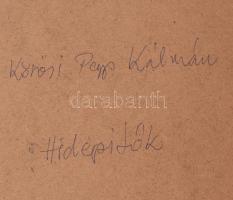 Kőrösi Papp Kálmán
darabanth
Hídépítők